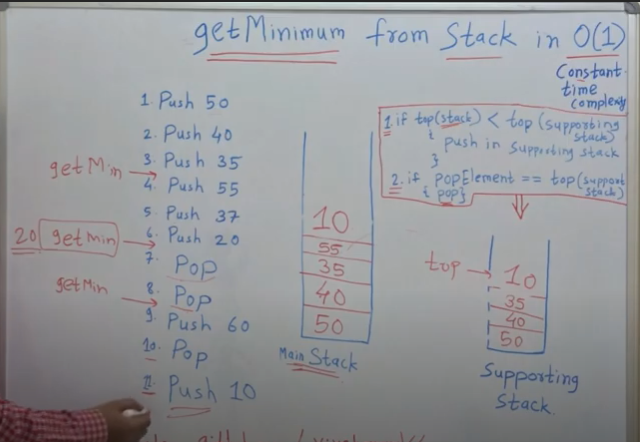 getMinimum from Stack in O(1)
Constant
time
complexity
1. Push 50
2. Push 40
3. Push 35
getMin
4. Push 55
5. Push 37
6. Push 20
20 getMin
7. Pop
getMin
8. Pop
9. Push 60
10. Pop
11. Push 10
10
55
35
40
50
Main Stack
1. if top(stack) < top (supporting
stack)
{ push in supporting stack
}
2. if popElement == top(support
stack)
{ pop }
top
10
35
40
50
Supporting
Stack